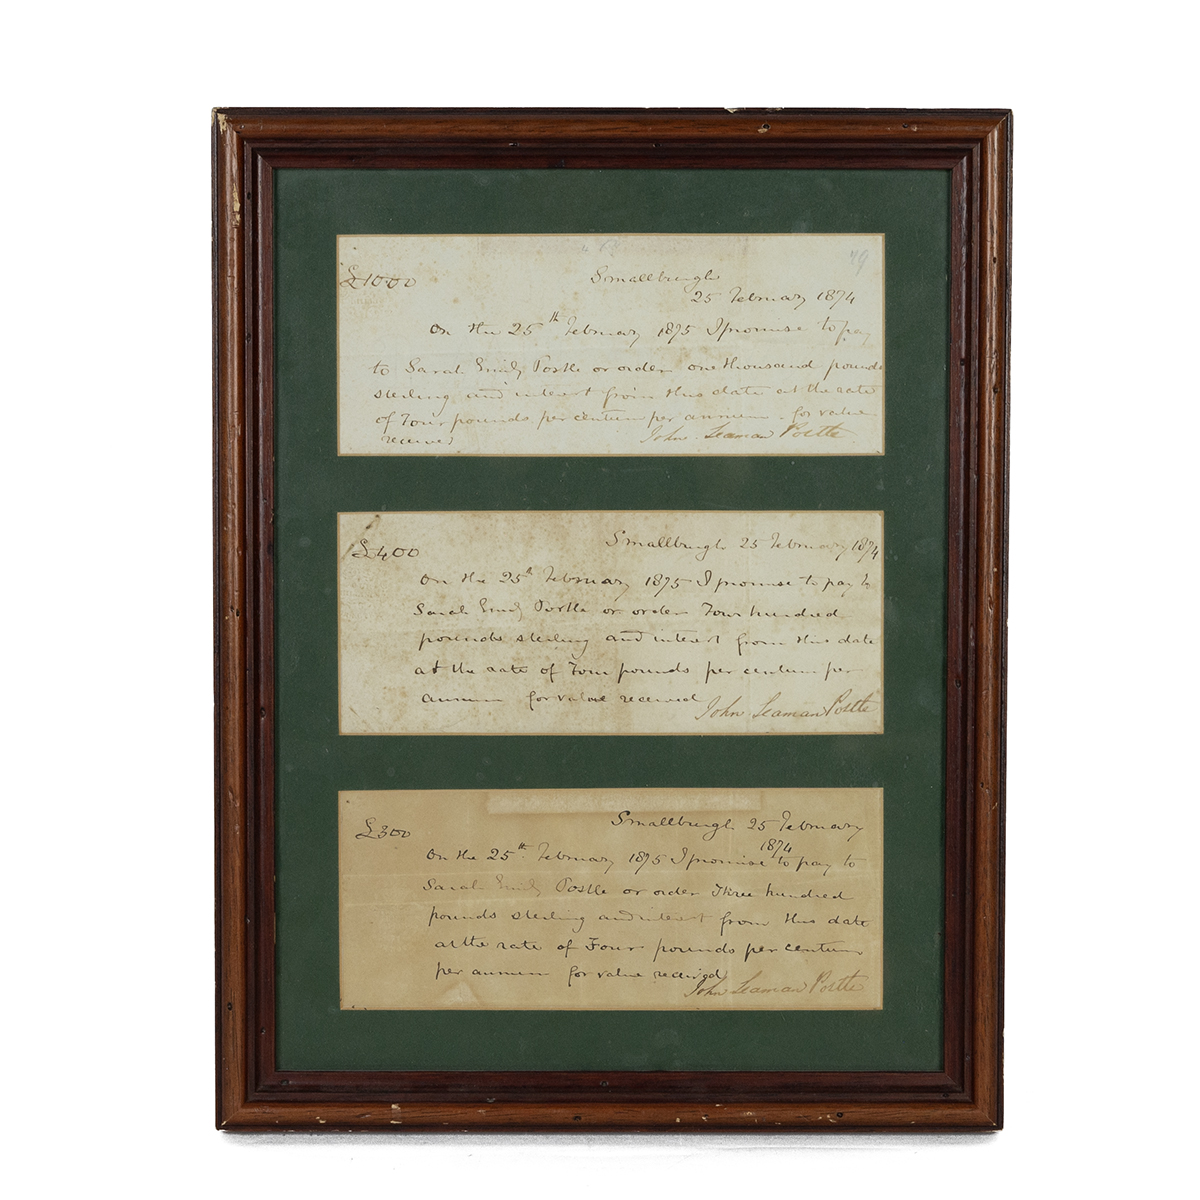 79
£1000
Smallburgh
25 February 1874
On the 25th February 1875 I promise to pay
to Sarah Emily Postle or order one thousand pounds
sterling and interest from this date at the rate
of Four pounds per centum per annum for value
received
John Seaman Postle
£400
Smallburgh 25 February 1874
On the 25th February 1875 I promise to pay to
Sarah Emily Postle or order Four hundred
pounds sterling and interest from this date
at the rate of Four pounds per centum per
annum for value received
John Seaman Postle
£300
Smallburgh 25 February
1874
On the 25th February 1875 I promise to pay to
Sarah Emily Postle or order Three hundred
pounds sterling and interest from this date
at the rate of Four pounds per centum
per annum for value received
John Seaman Postle